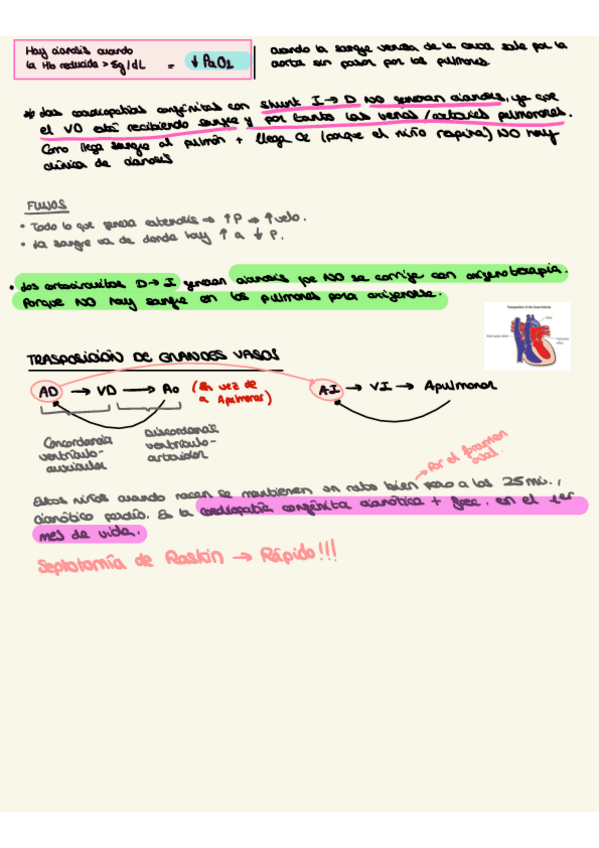 Hay cianosis cuando
la Hb reducida > 5g/dL = ↓ PaO2
cuando la sangre venosa de la cava sale por la
aorta sin pasar por los pulmones.
* Las cardiopatías congénitas con shunt I → D NO generan cianosis, ya que
el VD está recibiendo sangre y por tanto las venas/arterias pulmonares.
Como llega sangre al pulmón + llega O2 (porque el niño respira) NO hay
clínica de cianosis
FLUJOS
• Todo lo que genera estenosis → ↑P → ↑velo.
• La sangre va de donde hay ↑ a ↓ P.
• Los cortocircuitos D→I generan cianosis que NO se corrige con oxigenoterapia.
Porque NO hay sangre en los pulmones para oxigenarse.
TRASPOSICIÓN DE GRANDES VASOS
AD → VD → Ao (en vez de
a Apulmonar)
AI → VI → Apulmonar
Concordancia
ventrículo-
auricular
Discordancia
ventrículo-
arterial
→ Por el foramen
oval.
Estos niños cuando nacen se mantienen un rato bien pero a los 25 min.,
cianótico perdío. Es la cardiopatía congénita cianótica + frec. en el 1er
mes de vida.
Septotomía de Raskin → Rápido!!!